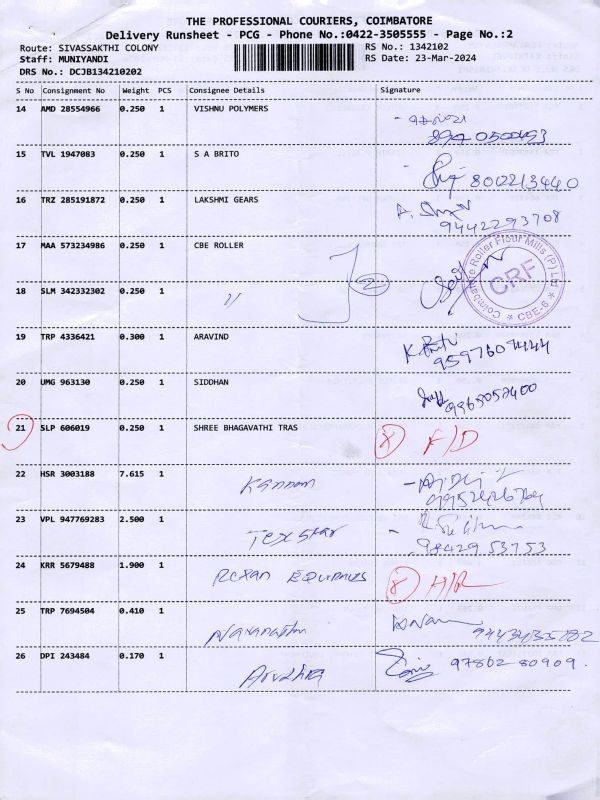 THE PROFESSIONAL COURIERS, COIMBATORE
Delivery Runsheet - PCG - Phone No.:0422-3505555 - Page No.:2
Route: SIVASSAKTHI COLONY RS No.: 1342102
Staff: MUNIYANDI RS Date: 23-Mar-2024
DRS No.: DCJB134210202
S No Consignment No Weight PCS Consignee Details Signature
14 AMD 28554966 0.250 1 VISHNU POLYMERS
15 TVL 1947083 0.250 1 S A BRITO
8002213440
16 TRZ 285191872 0.250 1 LAKSHMI GEARS
9442293708
17 MAA 573234986 0.250 1 CBE ROLLER
Coimbatore Roller Flour Mills (P) Ltd
CRF
* CBE-6 *
2
18 SLM 342332302 0.250 1 "
19 TRP 4336421 0.300 1 ARAVIND
9597607444
20 UMG 963130 0.250 1 SIDDHAN
9965052400
21 SLP 606019 0.250 1 SHREE BHAGAVATHI TRAS F/D
22 HSR 3003188 7.615 1 Kannan
23 VPL 947769283 2.500 1 Tex star
9842953753
24 KRR 5679488 1.900 1 H/R
25 TRP 7694504 0.410 1
26 DPI 243484 0.170 1 Arudhra 9786280909.